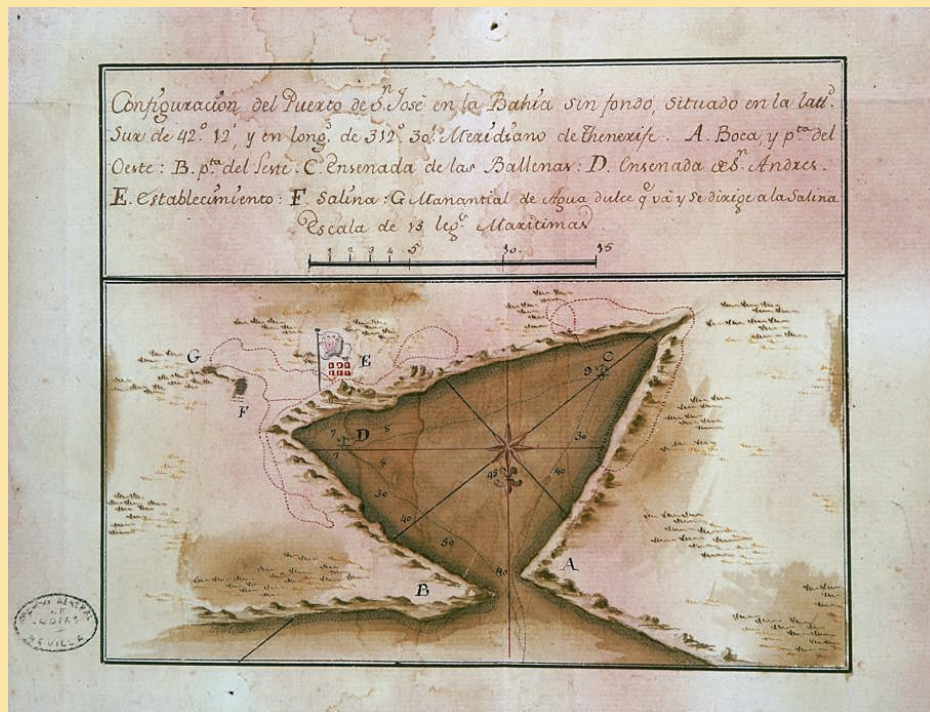 Configuracion del Puerto de S.n José en la Bahía sin fondo, situado en la latt.d
Sur de 42.° 12', y en long.d de 312° 30' Meridiano de Thenerife. A. Boca, y p.ta del
Oeste: B. p.ta del Leste. C. Ensenada de las Ballenas: D. Ensenada de S.n Andres.
E. Establecimiento: F. Salina: G Manantial de Agua dulce q.e vá y se dirige a la Salina
Escala de 15 leg.s Maritimas
1 2 3 4 5 10. 15
G
E
F
C
9
7 D 8
7
8
30
30
40
45
40
50
40
A
B
ARCHIVO GENERAL
DE
INDIAS
SEVILLA